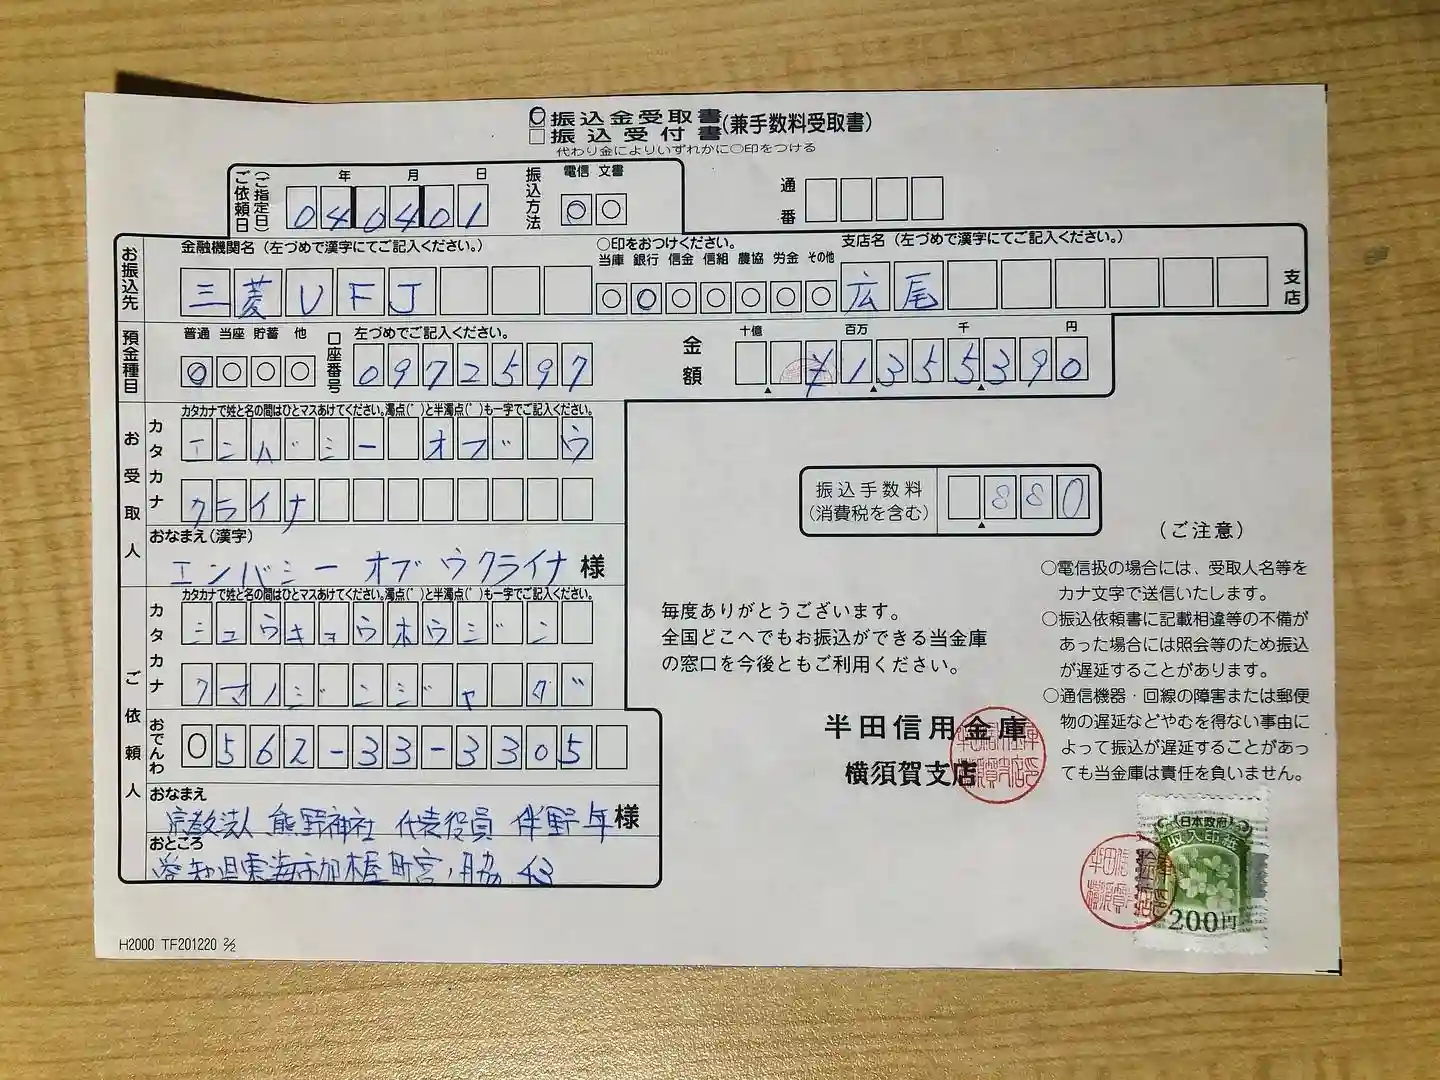 振込金受取書(兼手数料受取書)
振込受付書
代わり金によりいずれかに○印をつける
ご依頼日(ご指定日) 年 月 日
040401
振込方法 電信 文書
通番
お振込先
金融機関名(左づめで漢字にてご記入ください。)
三菱UFJ
○印をおつけください。
当庫 銀行 信金 信組 農協 労金 その他
支店名(左づめで漢字にてご記入ください。)
広尾 支店
預金種目 普通 当座 貯蓄 他
口座番号 左づめでご記入ください。
0972597
金額 十億 百万 千 円
¥1355390
お受取人
カタカナ
カタカナで姓と名の間はひとマスあけてください。濁点(゛)と半濁点(゜)も一字でご記入ください。
エンハ゛シー オフ゛ ウ
クライナ
おなまえ(漢字)
エンバシー オブ ウクライナ 様
振込手数料(消費税を含む)
880
ご依頼人
カタカナ
カタカナで姓と名の間はひとマスあけてください。濁点(゛)と半濁点(゜)も一字でご記入ください。
シュウキョウホウシ゛ン
クマノシ゛ンシ゛ャ タ゛
おでんわ
0562-33-3305
おなまえ
宗教法人 熊野神社 代表役員 伴野 年 様
おところ
愛知県東海市加木屋町宮ノ脇 43
毎度ありがとうございます。
全国どこへでもお振込ができる当金庫
の窓口を今後ともご利用ください。
半田信用金庫
横須賀支店
(ご注意)
○電信扱の場合には、受取人名等を
カナ文字で送信いたします。
○振込依頼書に記載相違等の不備が
あった場合には照会等のため振込
が遅延することがあります。
○通信機器・回線の障害または郵便
物の遅延などやむを得ない事由に
よって振込が遅延することがあっ
ても当金庫は責任を負いません。
日本政府
収入印紙
200円
H2000 TF201220 2/2